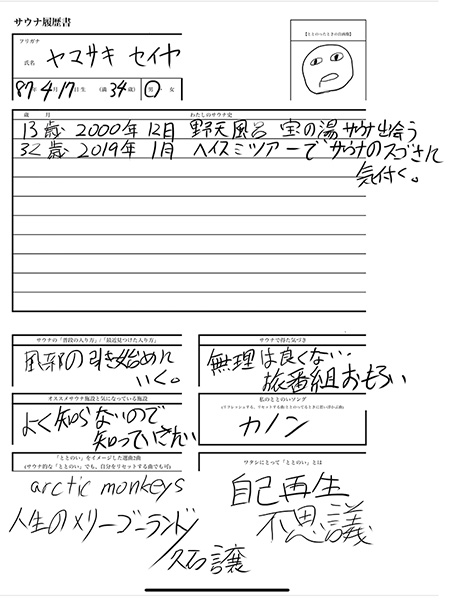 サウナ履歴書
フリガナ
氏名 ヤマサキ セイヤ
【ととのったときの自画像】
87年4月17日生 (満 34歳) 男・女
歳 月 わたしのサウナ史
13歳 2000年 12月 野天風呂 宝の湯サウナ出会う
32歳 2019年 1月 ヘイスミツアーで、サウナのスゴさに
気付く。
サウナの「普段の入り方」/「最近見つけた入り方」
風邪の引き始めに
いく。
サウナで得た気づき
無理は良くない.
旅番組おもろい
オススメサウナ施設と気になっている施設
よく知らないので
知っていきたい
私のととのいソング
カノン
「ととのい」をイメージした選曲2曲
(サウナ的な「ととのい」でも、自分をリセットする曲でも可)
arctic monkeys
人生のメリーゴーランド/
久石譲
ワタシにとって「ととのい」とは
自己再生
不思議